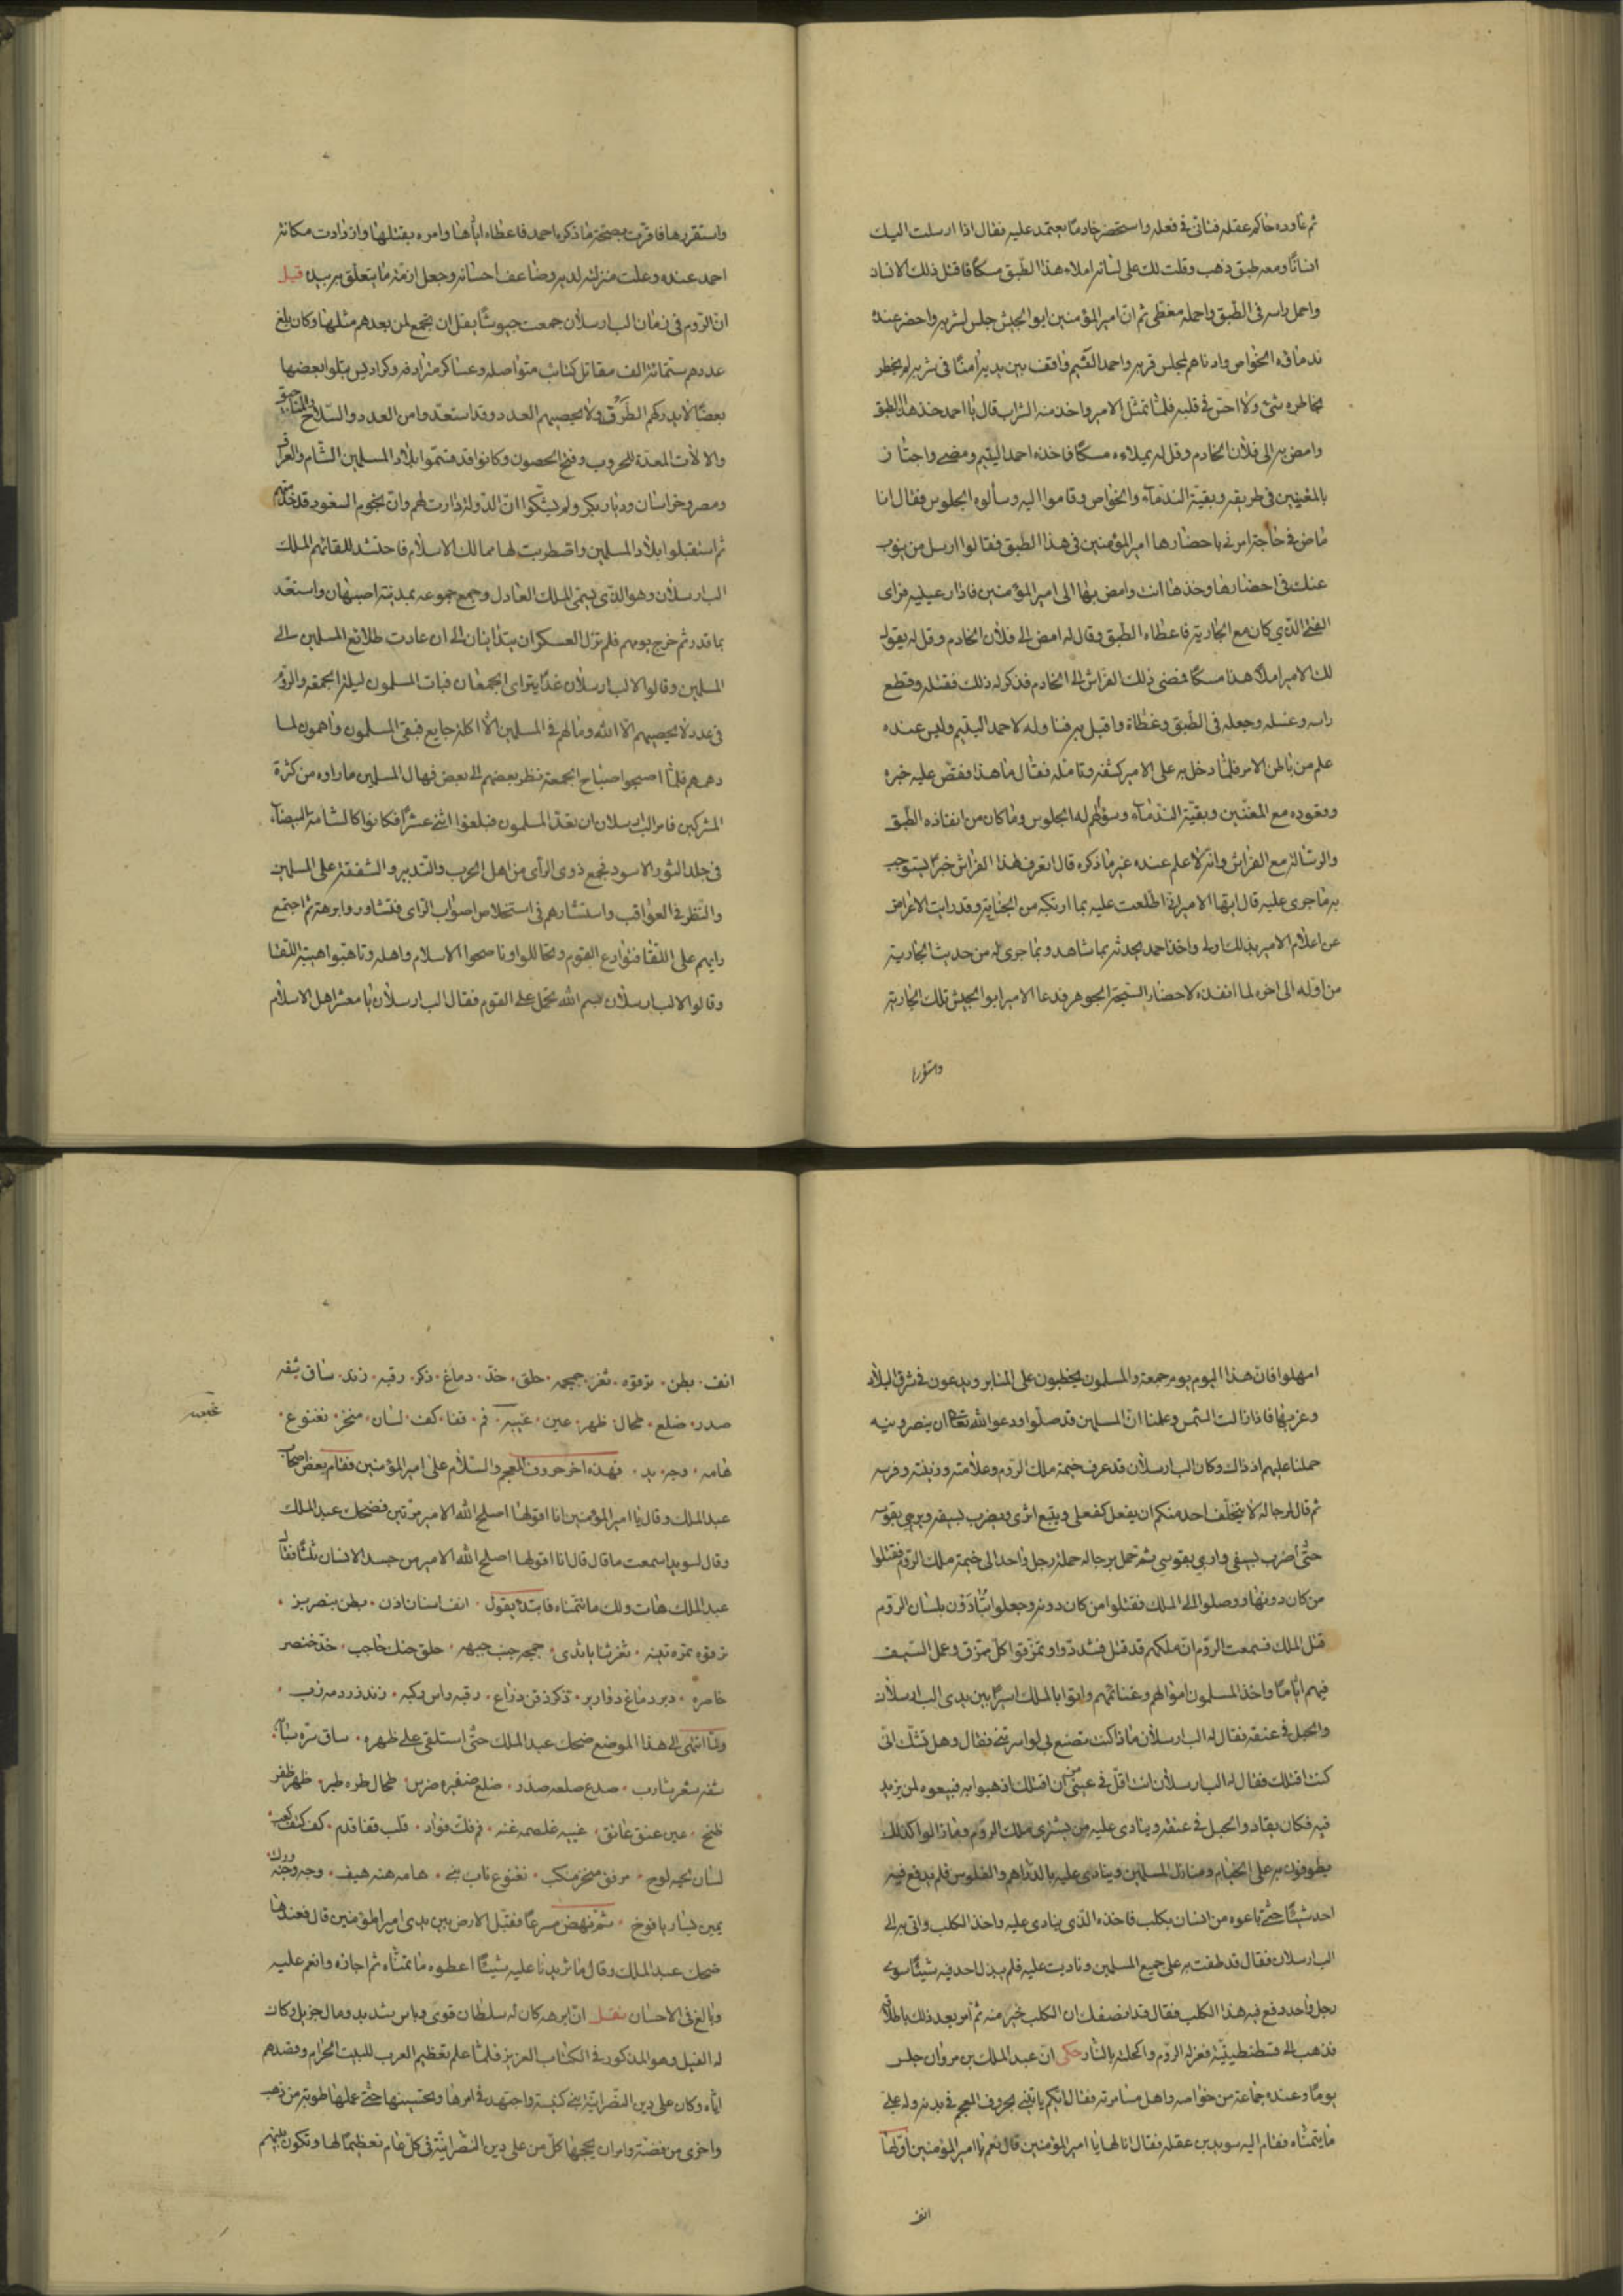 ثم عاوده حاكم عقله فتأنى في فعله واستحضر خادمًا يعتمد عليه فقال اذا ارسلت اليك
انسانًا ومعه طبق ذهب وقلت لك على لسانه املاء هذا الطبق مسكًا فاقتل ذلك الانسان
واجعل راسه في الطبق واحمله مغطى ثم ان امير المؤمنين ابو الجيش جلس لشربه واحضر عنده
ندماؤه الخواص وادناهم لمجلس قربه واحمد اليتيم واقف بين يديه آمنًا في سربه لم يخطر
بخاطره شئ ولا احس في قلبه فلما تمثل الامير واخذ منه الشراب قال يا احمد خذ هذا الطبق
وامض به الى فلان الخادم وقل له يملاءه مسكًا فاخذه احمد اليتيم ومضى واجتاز
بالمغنيين في طريقه وبقية الندمآء والخواص وقاموا اليه وسألوه الجلوس فقال انا
ماض في حاجة امرني باحضارها امير المؤمنين في هذا الطبق فقالوا ارسل من ينوب
عنك في احضارها وخذها انت وامض بها الى امير المؤمنين فادار عينيه فراى
الفتى الذي كان مع الجارية فاعطاه الطبق وقال له امض الى فلان الخادم وقل له يقول
لك الامير املأ هذا مسكًا فمضى ذلك الفراش الى الخادم فذكر له ذلك فقتله وقطع
راسه وغسله وجعله في الطبق وغطاه واقبل به فناوله لاحمد اليتيم وليس عنده
علم من باطن الامر فلما دخل به على الامير كشفه وتامله فقال ما هذا فقص عليه خبره
وقعوده مع المغنين وبقية الندمآء وسؤالهم له الجلوس وما كان من انفاذه الطبق
والرسالة مع الفراش وانه لا علم عنده غير ما ذكره قال اتعرف لهذا الفراش خبرًا يستوجب
به ما جرى عليه قال ايها الامير ان الذي اطلعت عليه بما ارتكبه من الجناية وقد رايت الاعراض
عن اعلام الامير بذلك اولى واخذ احمد يحدثه بما شاهد وبما جرى له من حديث الجارية
من اوله الى اخره لما انفذه لاحضار السبحة الجوهر فدعا الامير ابو الجيش تلك الجارية
واستقررها
واستقررها فاقرت بصحة ما ذكره احمد فاعطاه اياها وامره بقتلها وازدادت مكانة
احمد عنده وعلت منزلته لديه وضاعف احسانه وجعل ازمة ما يتعلق به بيده قيل
ان الروم في زمان الب ارسلان جمعت جيوشًا يقل ان يجمع لمن بعدهم مثلها وكان بلغ
عددهم ستمائة الف مقاتل كتائب متواصله وعساكر مترادفه وكراديس يتلوا بعضها
بعضًا لا يدركهم الطرف ولا يحصيهم العدد وقد استعدوا من العدد والسلاح والمناجيق
والالات المعدة للحروب وفتح الحصون وكانوا قد قسموا بلاد المسلمين الشام والعراق
ومصر وخراسان وديار بكر ولم يشكوا ان الدولة دارت لهم وان نجوم السعود قد خدمتهم
ثم استقبلوا بلاد المسلمين واضطربت لها ممالك الاسلام فاحتشد للقائهم الملك
الب ارسلان وهو الذي يسمى الملك العادل وجمع جموعه بمدينة اصبهان واستعد
بما قدر ثم خرج يومهم فلم تزل العسكران يتدانيان الى ان عادت طلائع المسلمين الى
المسلمين وقالوا لالب ارسلان غدًا يتراى الجمعان فبات المسلمون ليلة الجمعة والروم
في عدد لا يحصيهم الا الله وما لهم في المسلمين الا اكلة جايع فبقى المسلمون واهمون لما
دهمهم فلما اصبحوا صباح الجمعة نظر بعضهم الى بعض فهال المسلمين ما راوه من كثرة
المشركين فامر الب ارسلان ان تعد المسلمون فبلغوا اثني عشر الفا فكانوا كالشامة البيضآء
في جلد الثور الاسود فجمع ذوى الرأى من اهل الحرب والتدبير والشفقة على المسلمين
والنظر في العواقب واستشارهم في استخلاص اصواب الراى فتشاوروا برهة ثم اجتمع
رايهم على اللقا فتوادع القوم وتحاللوا وناصحوا الاسلام واهله وتاهبوا اهبة اللقا
وقالوا لالب ارسلان بسم الله نحمل على القوم فقال الب ارسلان يا معشر اهل الاسلام
امهلوا فان هذا اليوم يوم جمعة والمسلمون يخطبون على المنابر ويدعون في شرق البلاد
وغربها فاذا زالت الشمس وعلمنا ان المسلمين قد صلوا ودعوا الله تعالى ان ينصر دينه
حملنا عليهم اذ ذاك وكان الب ارسلان قد عرف خيمة ملك الروم وعلامته وزينته وفرسه
ثم قال لرجاله لا يتخلف احد منكم ان يفعل كفعلى ويتبع اثرى ويضرب بسيفه ويرمى بقوسه
حتى اضرب بسيفى وارمى بقوسى ثم حمل برجاله حملة رجل واحد الى خيمة ملك الروم فقتلوا
من كان دونها ووصلوا الى الملك فقتلوا من كان دونه وجعلوا ينادون بلسان الروم
قتل الملك فسمعت الروم ان ملكهم قد قتل فتبددوا وتمزقوا كل ممزق وعمل السيف
فيهم ايامًا واخذ المسلمون اموالهم وغنائمهم واتوا بالملك اسيرًا بين يدى الب ارسلان
والحبل في عنقه فقال له الب ارسلان ماذا كنت تصنع بى لو اسرتنى فقال وهل تشك انى
كنت اقتلك فقال له الب ارسلان انت اقل في عينى من ان اقتلك اذهبوا به فبيعوه لمن يزيد
فيه فكان يقاد والحبل في عنقه وينادى عليه من يشترى ملك الروم وما زالوا كذلك
يطوفون به على الخيام ومنازل المسلمين وينادى عليه بالدراهم والفلوس فلم يدفع فيه
احد شيئًا حتى باعوه من انسان بكلب فاخذه الذى ينادى عليه واخذ الكلب واتى به الى
الب ارسلان فقال قد طفت به على جميع المسلمين وناديت عليه فلم يبذل احد فيه شيئًا سوى
رجل واحد دفع فيه هذا الكلب فقال قد انصفك ان الكلب خير منه ثم امر بعد ذلك باطلاقه
فذهب الى قسطنطينية فعزله الروم واكحلته بالنار حكى ان عبد الملك بن مروان جلس
يومًا وعنده جماعة من خواصه واهل مسامرته فقال ايكم ياتينى بحروف المعجم في بدنه وله على
ما يتمناه فقام اليه سويد بن عقله فقال انا لها يا امير المؤمنين قال نعم يا امير المؤمنين اولها
انف
انف ۰ بطن ۰ ترقوه ۰ ثغر ۰ جمجمه ۰ حلق ۰ خد ۰ دماغ ۰ ذكر ۰ رقبه ۰ زند ۰ ساق شفه
صدر ۰ ضلع ۰ طحال ۰ ظهر ۰ عين ۰ غببه ۰ فم ۰ قفا ۰ كف ۰ لسان ۰ منخر ۰ نغنوع ۰
هامه ۰ وجه ۰ يد ۰ فهذه اخر حروف المعجم والسلام على امير المؤمنين فقام بعض اصحاب
عبد الملك وقال يا امير المؤمنين انا اقولها اصلح الله الامير مرتين فضحك عبد الملك
وقال لسويد اسمعت ما قال قال انا اقولها اصلح الله الامير من جسد الانسان ثلثًا فقال
عبد الملك هات ولك ما تتمناه فابتدا يقول ۰ انف اسنان اذن ۰ بطن بنصر بز ۰
ترقوه تمره تينه ۰ ثغر ثنايا ثدى ۰ جمجمه جنب جبهه ۰ حلق حنك حاجب ۰ خد خنصر
خاصره ۰ دبر دماغ دواير ۰ ذكر ذقن ذراع ۰ رقبه راس ركبه ۰ زند زردمه زب ۰
ولما انتهى الى هذا الموضع ضحك عبد الملك حتى استلقى على ظهره ۰ ساق سره سبابه
شفه شعر شارب ۰ صدغ صلعه صدر ۰ ضلع ضفيره ضرس ۰ طحال طره طبر ۰ ظهر ظفر
ظلح ۰ عين عنق عاتق ۰ غببه غلصمه غنه ۰ فم فك فؤاد ۰ قلب قفا قدم ۰ كف كتف كعب
لسان لحيه لوح ۰ مرفق منخر منكب ۰ نغنوع ناب نى ۰ هامه هنه هيف ۰ وجه وجنه ورك
يمين يسار يافوخ ۰ ثم نهض مسرعًا فقبل الارض بين يدى امير المؤمنين قال فعندها
ضحك عبد الملك وقال ما تزيدنا عليه شيئًا اعطوه ما تمناه ثم اجازه وانعم عليه
وبالغ في الاحسان نقل ان ابرهه كان له سلطان قوى وباس شديد ومال جزيل وكان
له الفيل وهو المذكور في الكتاب العزيز فلما علم تعظيم العرب للبيت الحرام وقصدهم
اياه وكان على دين النصرانية بنى كنيسة واجتهد في امرها وتحسينها حتى عملها طوبة من ذهب
واخرى من فضة وامر ان يحجها كل من على دين النصرانية في كل عام تعظيمًا لها وتكون بلبنهم